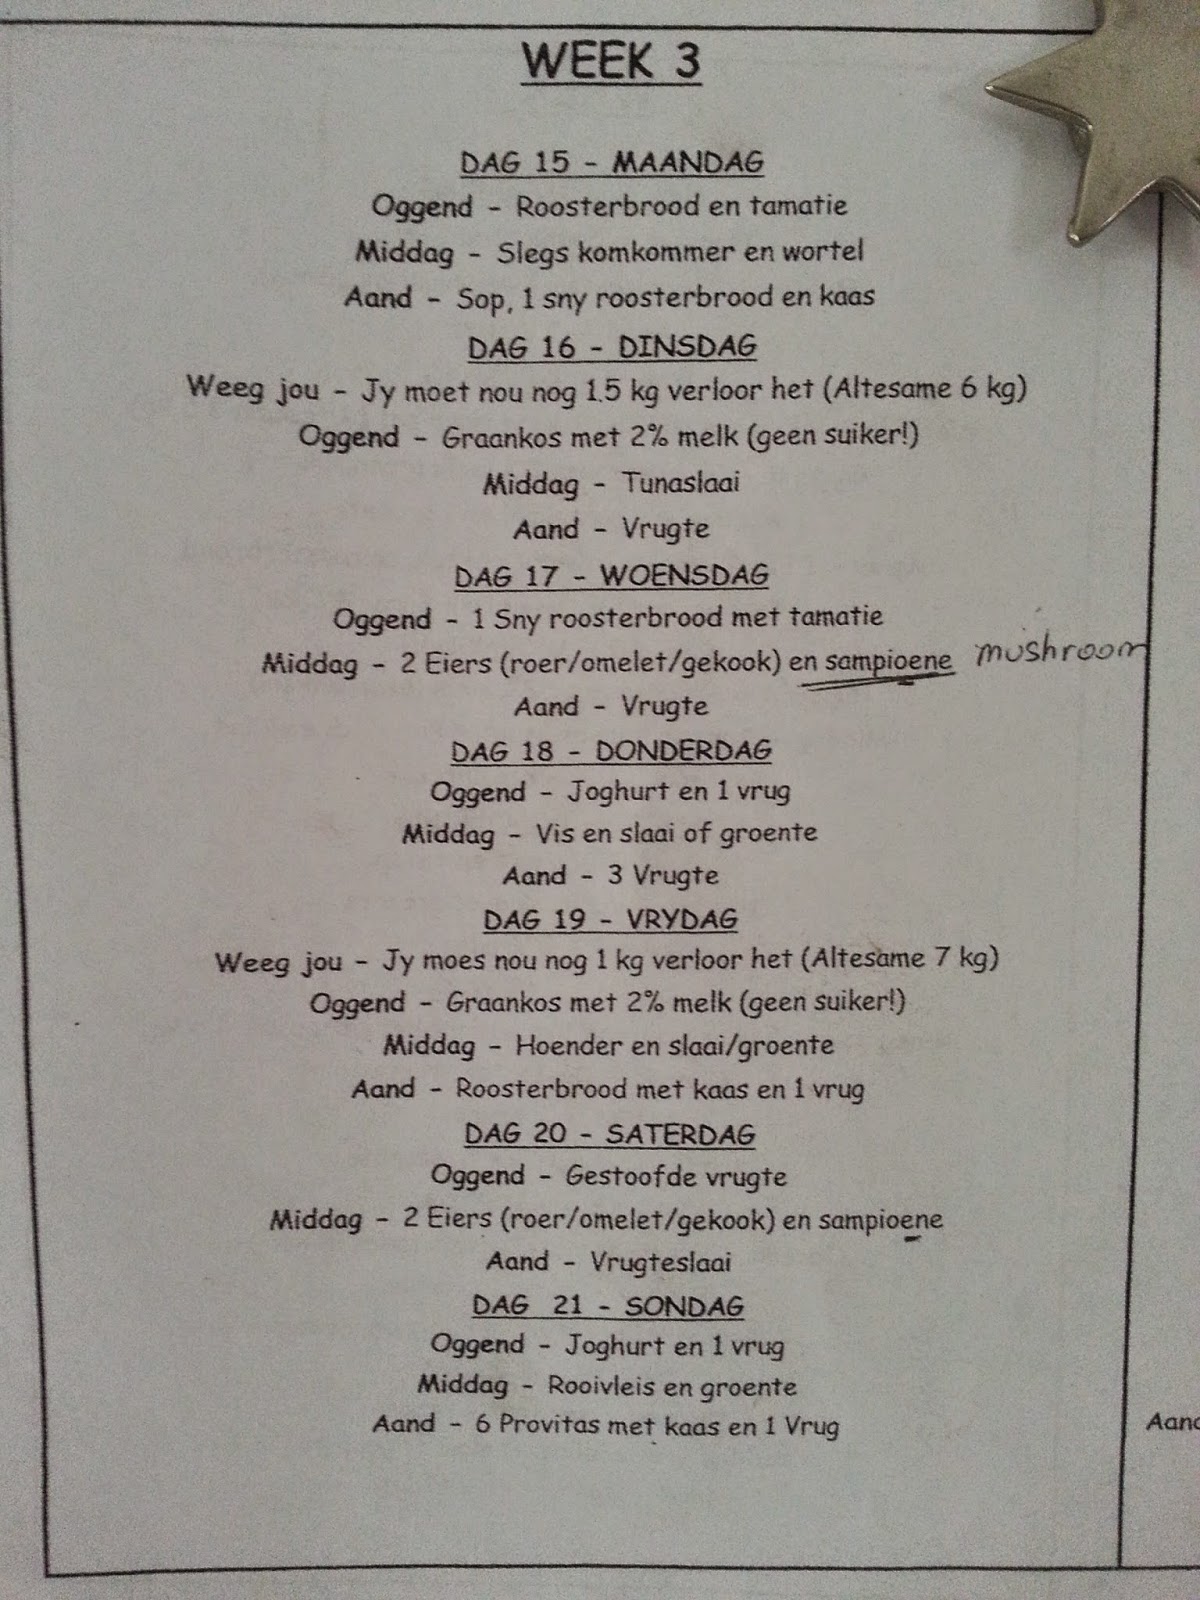 WEEK 3
DAG 15 - MAANDAG
Oggend - Roosterbrood en tamatie
Middag - Slegs komkommer en wortel
Aand - Sop, 1 sny roosterbrood en kaas
DAG 16 - DINSDAG
Weeg jou - Jy moet nou nog 1.5 kg verloor het (Altesame 6 kg)
Oggend - Graankos met 2% melk (geen suiker!)
Middag - Tunaslaai
Aand - Vrugte
DAG 17 - WOENSDAG
Oggend - 1 Sny roosterbrood met tamatie
Middag - 2 Eiers (roer/omelet/gekook) en sampioene mushroom
Aand - Vrugte
DAG 18 - DONDERDAG
Oggend - Joghurt en 1 vrug
Middag - Vis en slaai of groente
Aand - 3 Vrugte
DAG 19 - VRYDAG
Weeg jou - Jy moes nou nog 1 kg verloor het (Altesame 7 kg)
Oggend - Graankos met 2% melk (geen suiker!)
Middag - Hoender en slaai/groente
Aand - Roosterbrood met kaas en 1 vrug
DAG 20 - SATERDAG
Oggend - Gestoofde vrugte
Middag - 2 Eiers (roer/omelet/gekook) en sampioene
Aand - Vrugteslaai
DAG 21 - SONDAG
Oggend - Joghurt en 1 vrug
Middag - Rooivleis en groente
Aand - 6 Provitas met kaas en 1 Vrug